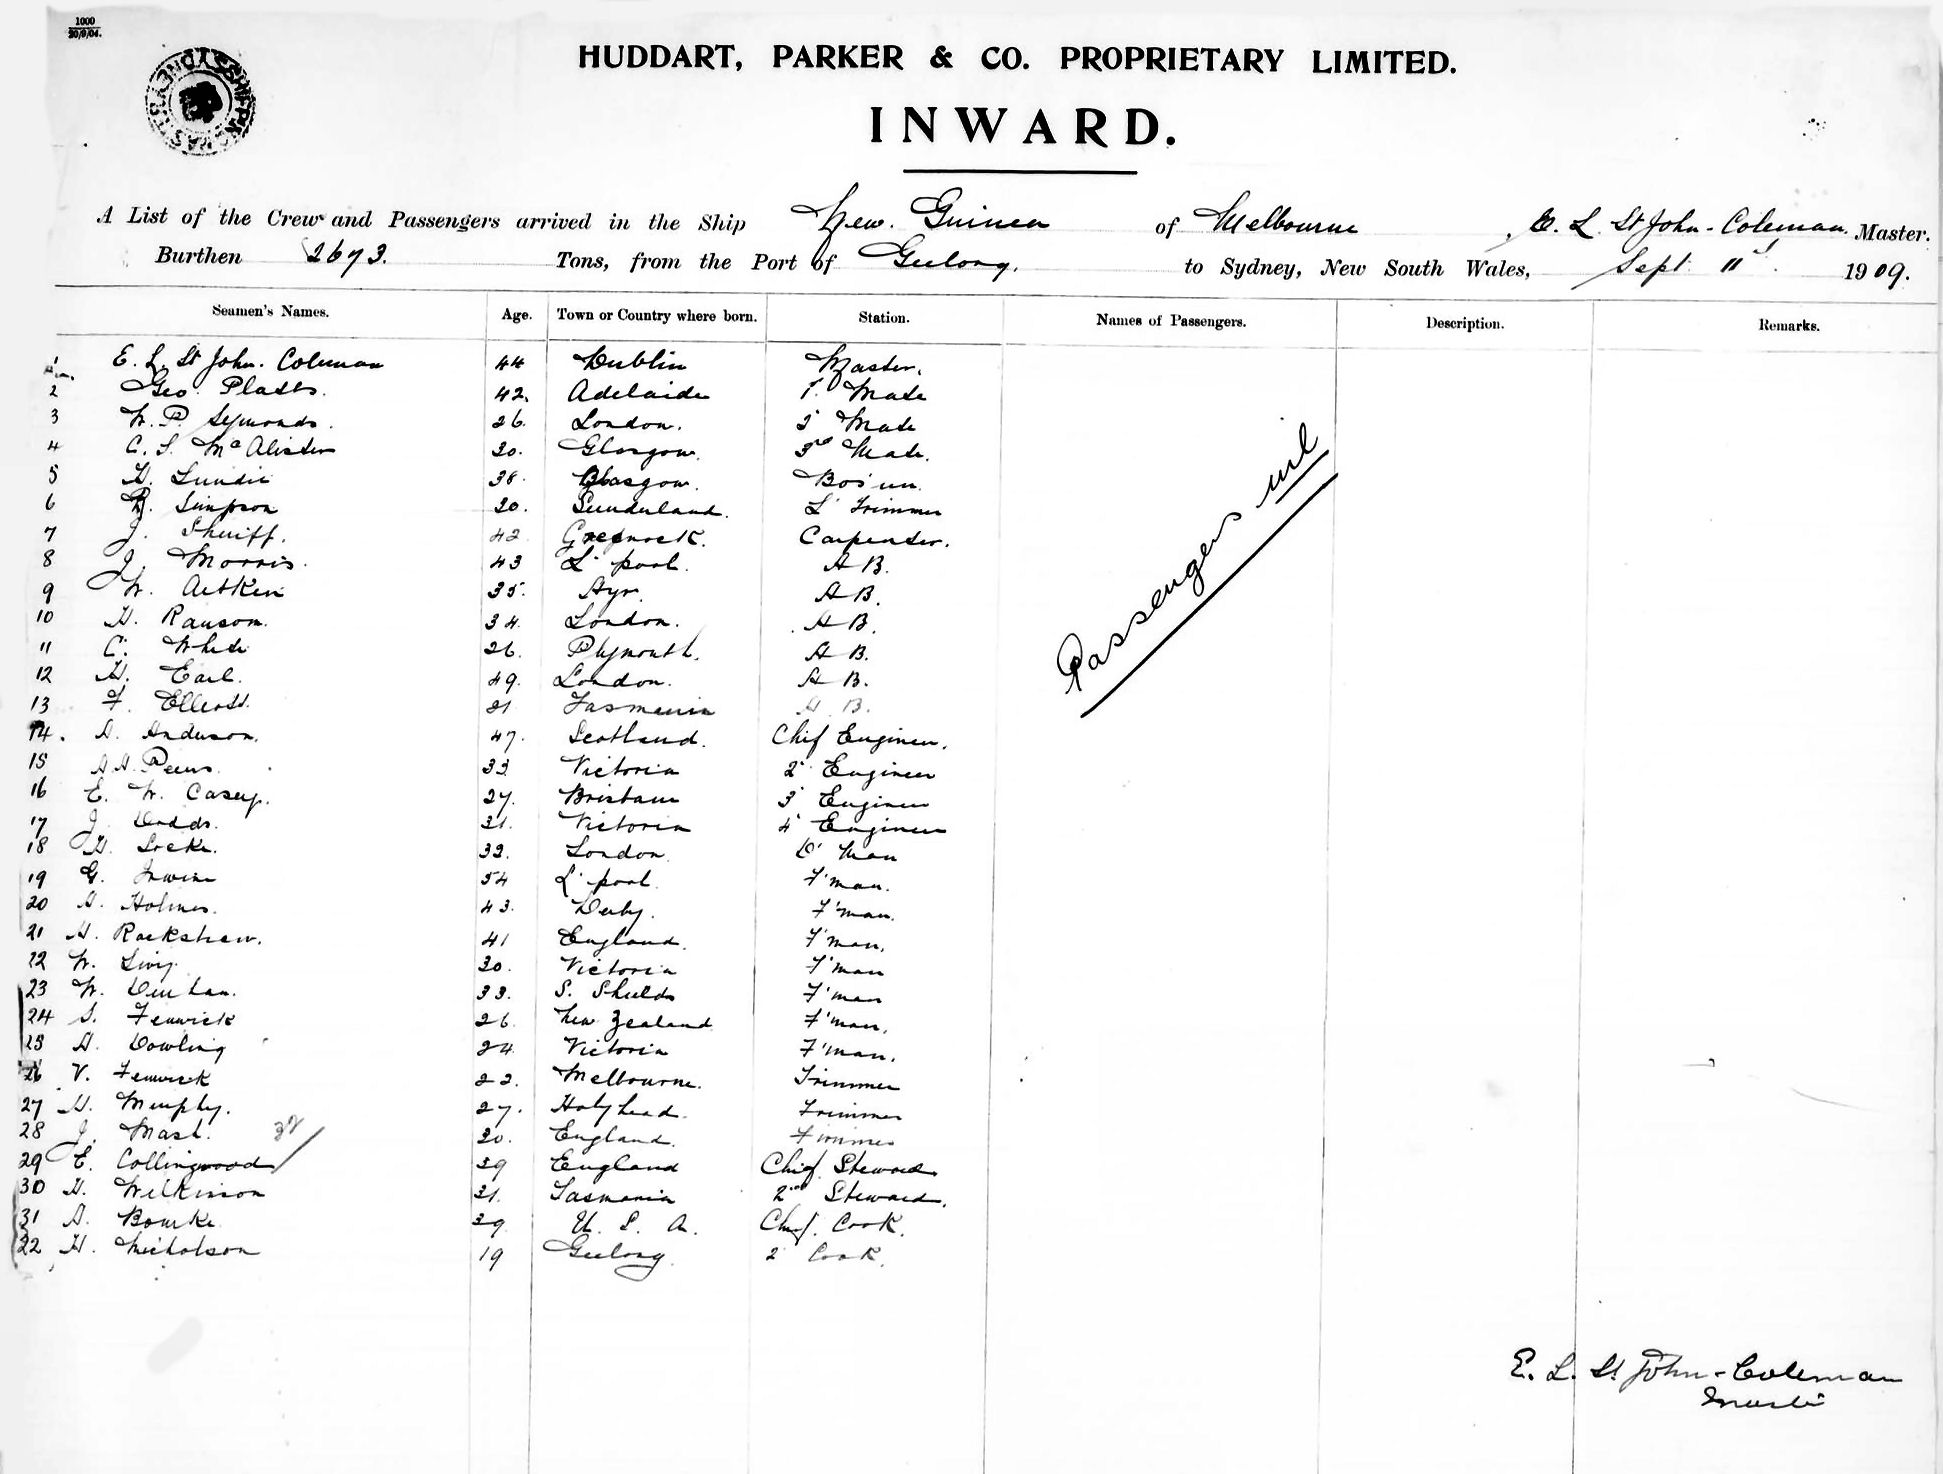 1000
20/9/04.
HUDDART, PARKER & CO. PROPRIETARY LIMITED.
INWARD.
A List of the Crew and Passengers arrived in the Ship New Guinea of Melbourne, E. L. St John-Coleman Master.
Burthen 2673. Tons, from the Port of Geelong, to Sydney, New South Wales, Sept 11 1909.
Seamen's Names. Age. Town or Country where born. Station. Names of Passengers. Description. Remarks.
1 E. L. St John. Coleman 44 Dublin Master.
2 Geo. Platts. 42. Adelaide 1 Mate
3 W. P. Symonds. 26. London. 2 Mate
4 C. S. McAlister 30. Glasgow. 3rd Mate.
5 H. Lundie 38. Glasgow. Bos'un.
6 Simpson 30. Sunderland. L' Trimmer
7 J. Shuiff. 42 Greenock. Carpenter.
8 J. Morris. 43 L'pool. A B.
9 W. Aitken 35. Ayr. A B.
10 H. Ransom. 34. London. A B.
11 C. White 26. Plymouth. A B.
12 H. Earl. 49. London. A B.
13 F. Elliott. 21 Tasmania A. B.
14. A. Anderson. 47. Scotland. Chief Engineer.
15 A. A. Peers. 33 Victoria 2 Engineer
16 E. W. Casey. 27. Brisbane 3 Engineer
17 J. Dodds. 31. Victoria 4 Engineer
18 H. Locke. 32. London D' Man
19 G. Irwin 54 L'pool. F'man.
20 A. Holmes. 43. Derby. F'man.
21 H. Rackstraw. 41 England. F'man.
22 W. 30. Victoria F'man
23 W. Denham. 33. S. Shields F'man
24 S. Fenwick 26. New Zealand F'man.
25 A. Dowling 24. Victoria F'man.
26 V. Fenwick 22. Melbourne. Trimmer
27 H. Murphy. 27. Holyhead. Trimmer
28 J. Mash. 30. England. Trimmer
32
29 E. Collingwood 39 England Chief Steward
30 H. Wilkinson 31. Tasmania 2nd Steward.
31 A. Bourke 39. U. S. A. Chief. Cook.
32 H. Nicholson 19 Geelong. 2 Cook.
Passengers nil
E. L. St John-Coleman
Master